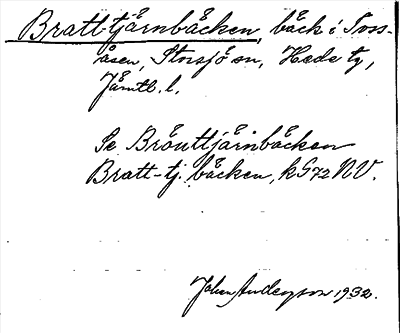 Brattjärnbäcken, bäck i Toss-
åsen, Storsjö sn, Hede tg,
Jämtl. l.
Se Brånttjärnbäcken
Bratt-tj. bäcken, k G72 NV.
Johan Anderson 1932.